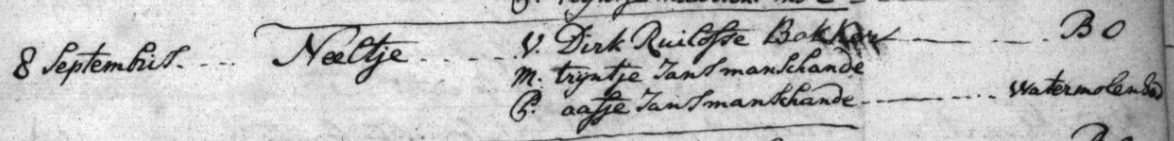 8 Septembris.... Neeltje..... V. Dirk Ruilofse Bakker BO
M. tryntje Jans manschande
P. aafje Jans manschande Watermolen